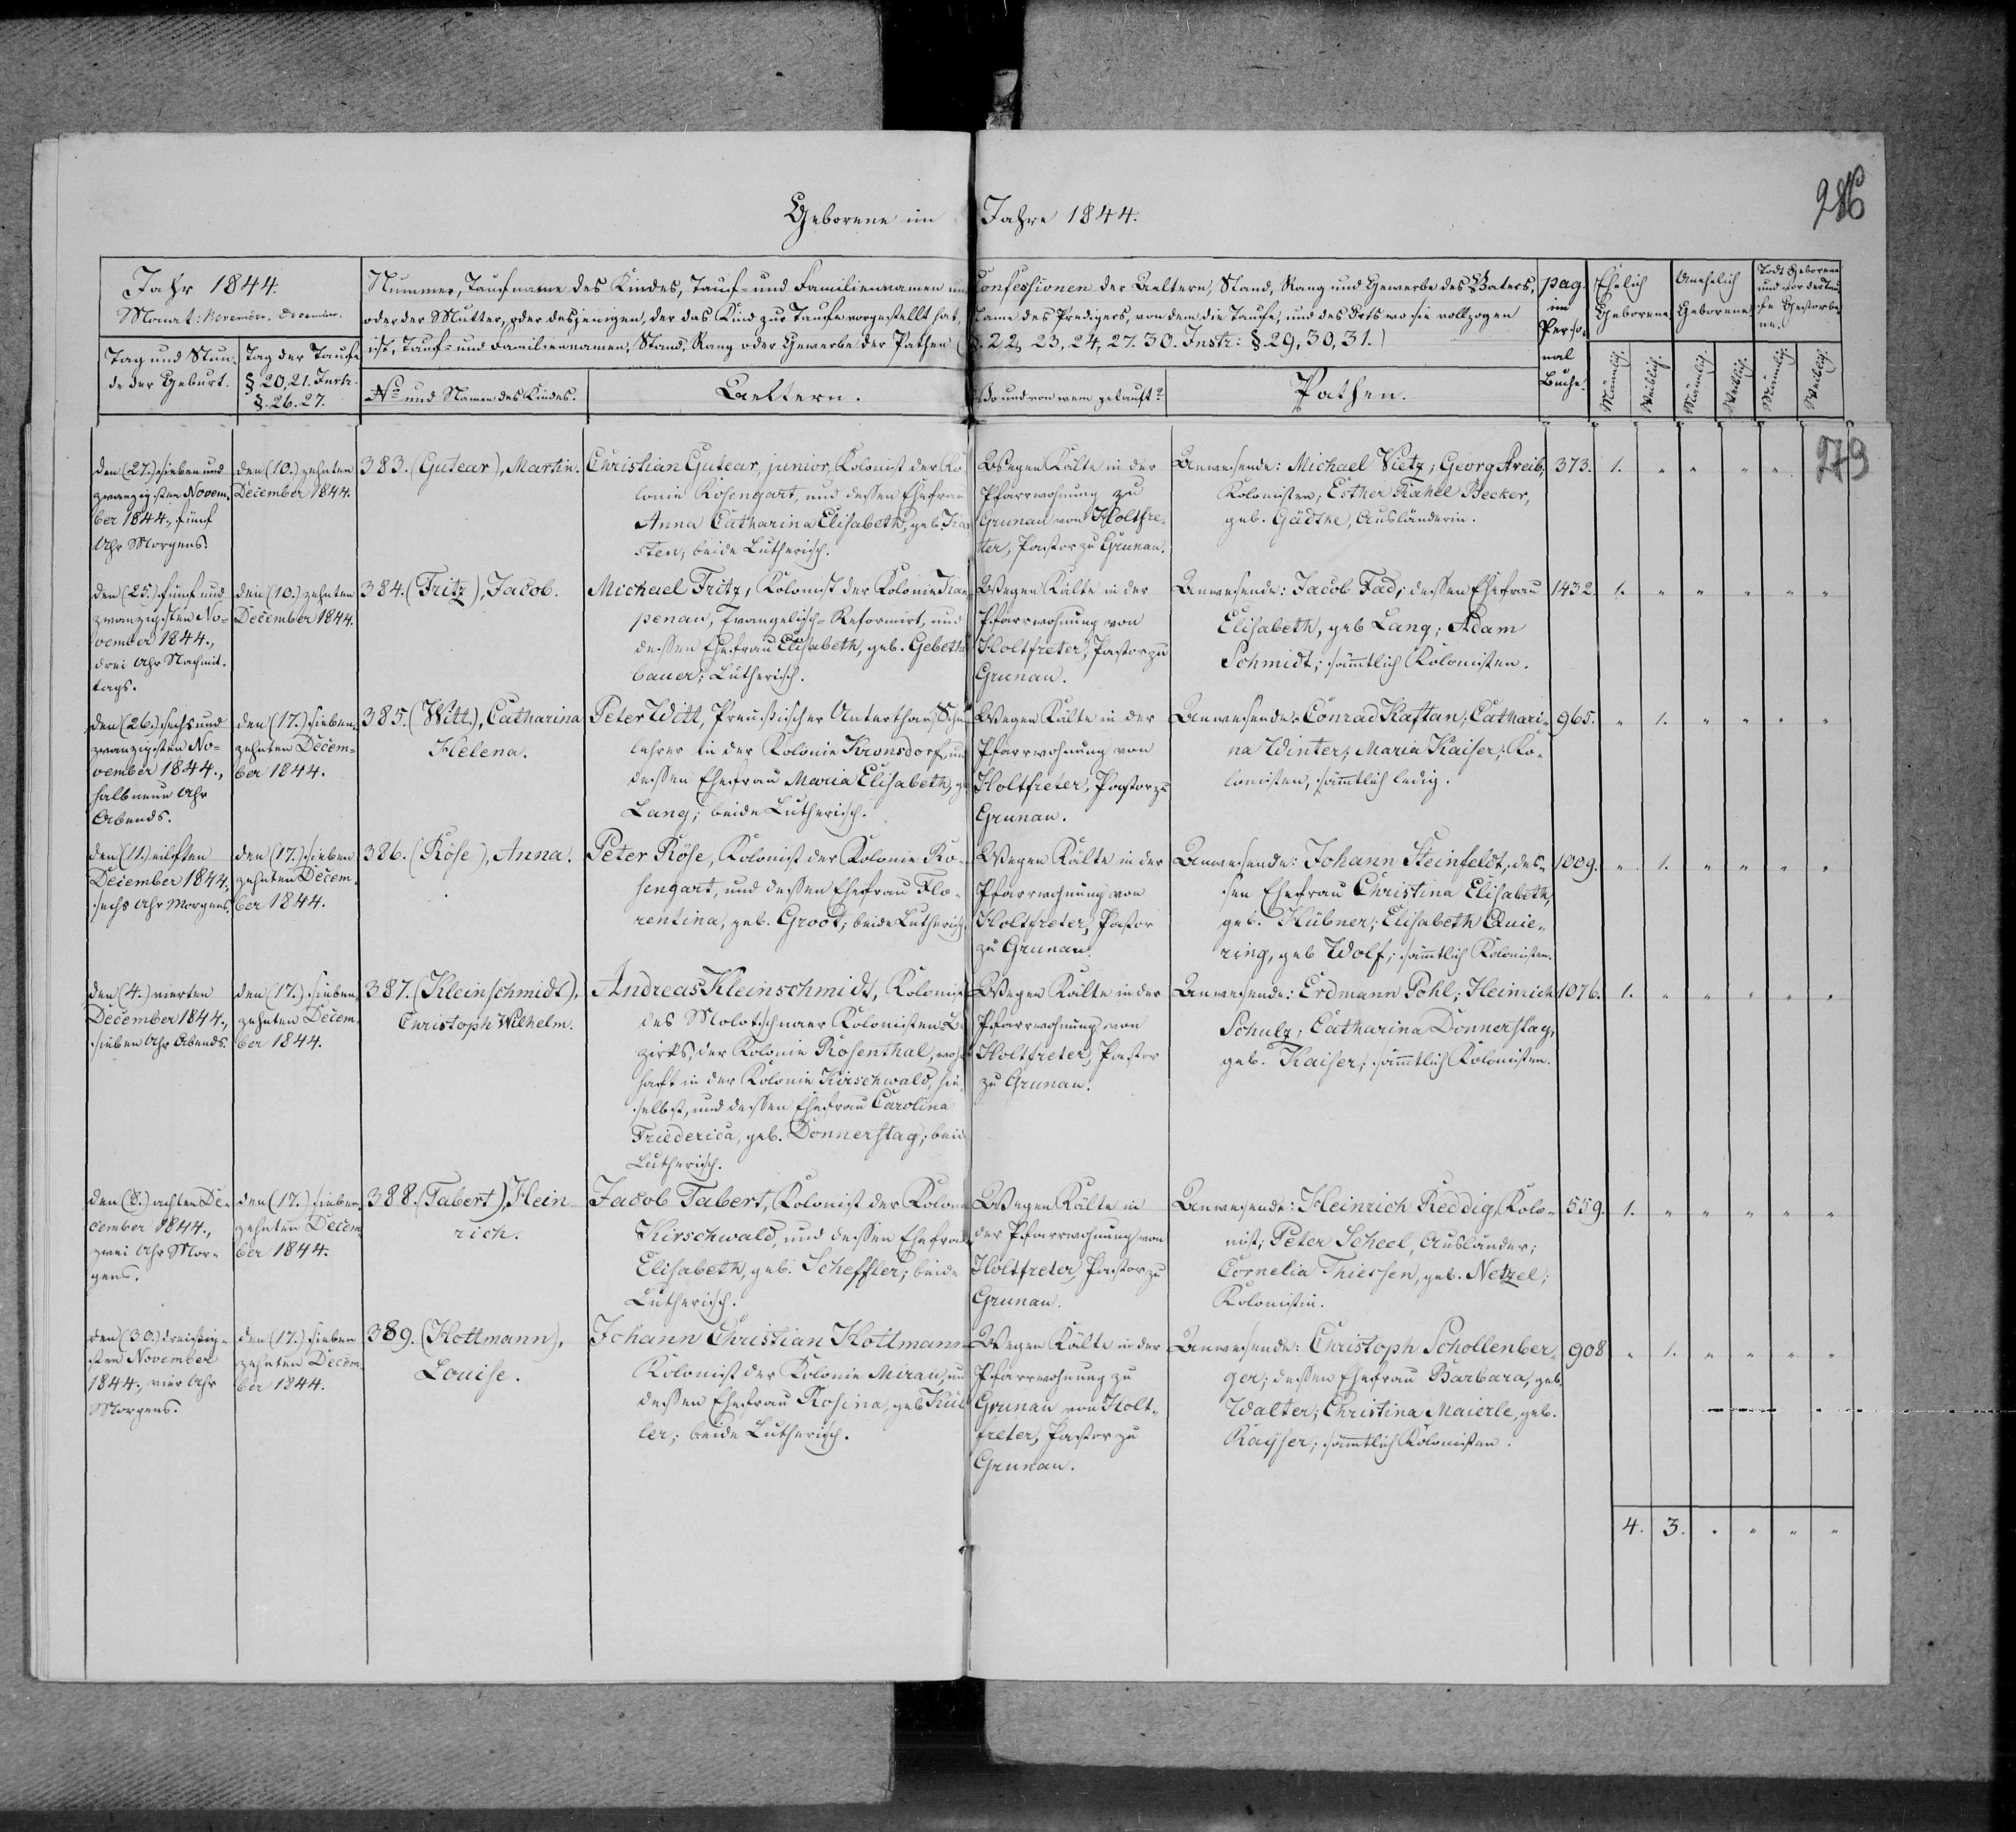 Geborene im Jahre 1844.
286
Jahr 1844.
Monat: November. December.
Tag und Stun-
de der Geburt.
Tag der Taufe
§ 20, 21. Instr.
§. 26. 27.
Nummer, Taufname des Kindes, Tauf- und Familiennamen und Confessionen der Aeltern, Stand, Rang und Gewerbe des Vaters,
oder der Mutter, oder desjenigen, der das Kind zur Taufe vorgestellt hat, Name des Predigers, von dem die Taufe, und des Orts wo sie vollzogen
ist, Tauf- und Familiennamen, Stand, Rang oder Gewerbe der Pathen (§. 22, 23, 24, 27. 30. Instr: §. 29, 30, 31.)
No und Namen des Kindes.
Aeltern.
Wo und von wem getauft?
Pathen.
pag.
im
Perso-
nal
Buche.
Ehelich
Geborene
Unehelich
Geborene
Todt Geborene
und vor der Tau-
fe Gestorbe-
ne.
Männlich.
Weiblich.
Männlich.
Weiblich.
Männlich.
Weiblich.
279
den (27.) sieben und
zwanzigsten Novem-
ber 1844., fünf
Uhr Morgens.
den (10.) zehnten
December 1844.
383. (Gutear), Martin.
Christian Gutear, junior, Kolonist der Ko-
lonie Rosengart, und dessen Ehefrau
Anna Catharina Elisabeth, geb. Kar-
sten; beide Lutherisch.
Wegen Kälte in der
Pfarrwohnung zu
Grunau von Holtfre-
ter, Pastor zu Grunau.
Anwesende: Michael Vietz; Georg Areib,
Kolonisten; Esther Rahel Becker,
geb. Gädtke, Ausländerin.
373. 1. " " " "
den (25.) fünf und
zwanzigsten No-
vember 1844.,
drei Uhr Nachmit-
tags.
den (10.) zehnten
December 1844.
384. (Fritz), Jacob.
Michael Fritz, Kolonist der Kolonie
penau, Evangelisch-Reformirt, und
dessen Ehefrau Elisabeth, geb. Gebetts-
bauer; Lutherisch.
Wegen Kälte in der
Pfarrwohnung von
Holtfreter, Pastor zu
Grunau.
Anwesende: Jacob Fad; dessen Ehefrau
Elisabeth, geb Lang; Adam
Schmidt; sämtlich Kolonisten.
1432. 1. " " " " "
den (26.) sechs und
zwanzigsten No-
vember 1844.,
halb neun Uhr
Abends.
den (17.) sieben-
zehnten Decem-
ber 1844.
385. (Witt.), Catharina
Helena.
Peter Witt, Preussischer Unterthan, Schul
lehrer in der Kolonie Kronsdorf, und
dessen Ehefrau Maria Elisabeth, g
Lang; beide Lutherisch.
Wegen Kälte in der
Pfarrwohnung von
Holtfreter, Pastor zu
Grunau.
Anwesende: Conrad Kaftan; Cathari-
na Winter; Maria Kaiser; Ko-
lonisten, sämtlich ledig.
965. " 1. " " " "
den (11.) eilften
December 1844.,
sechs Uhr Morgens.
den (17.) sieben
zehnten Decem-
ber 1844.
386. (Röse), Anna.
Peter Röse, Kolonist der Kolonie Ro-
sengart, und dessen Ehefrau Flo-
rentina, geb. Groot; beide Lutherisch.
Wegen Kälte in der
Pfarrwohnung von
Holtfreter, Pastor
zu Grunau.
Anwesende: Johann Steinfeldt, des-
sen Ehefrau Christina Elisabeth,
geb. Hübner; Elisabeth Quie-
ring, geb Wolf; sämtlich Kolonisten.
1009. " 1. " " " "
den (4.) vierten
December 1844.,
sieben Uhr Abends.
den (17.) sieben-
zehnten Decem-
ber 1844.
387. (Kleinschmidt),
Christoph Wilhelm.
Andreas Kleinschmidt, Kolonist
des Molotschnaer Kolonisten Be
zirks, der Kolonie Rosenthal, wohn
haft in der Kolonie Kirschwald, hie-
selbst, und dessen Ehefrau Carolina
Friederica, geb. Donnerstag; beide
Lutherisch.
Wegen Kälte in der
Pfarrwohnung von
Holtfreter, Pastor
zu Grunau.
Anwesende: Erdmann Pohl; Heinrich
Schulz; Catharina Donnerstag,
geb. Kaiser; sämtlich Kolonisten.
1076. 1. " " " " "
den (8.) achten De-
cember 1844.,
zwei Uhr Mor-
gens.
den (17.) sieben-
zehnten Decem-
ber 1844.
388. (Tabert), Hein
rich.
Jacob Tabert, Kolonist der Kolonie
Kirschwald, und dessen Ehefrau
Elisabeth, geb. Scheffler; beide
Lutherisch.
Wegen Kälte in
der Pfarrwohnung von
Holtfreter, Pastor zu
Grunau.
Anwesende: Heinrich Reddig, Kolo-
nist; Peter Scheel, Ausländer;
Cornelia Thiessen, geb. Netzel;
Kolonistin.
559. 1. " " " " "
den (30.) dreissig-
sten November
1844., vier Uhr
Morgens.
den (17.) sieben
zehnten Decem-
ber 1844.
389. (Hottmann),
Louise.
Johann Christian Hottmann
Kolonist der Kolonie Mirau, un
dessen Ehefrau Rosina, geb Kül
ler; beide Lutherisch.
Wegen Kälte in der
Pfarrwohnung zu
Grunau von Holt-
freter, Pastor zu
Grunau.
Anwesende: Christoph Schollenber-
ger; dessen Ehefrau Barbara, geb.
Walter; Christina Maierle, geb.
Kayser; sämtlich Kolonisten.
908 " 1. " " " "
4. 3. " " " "